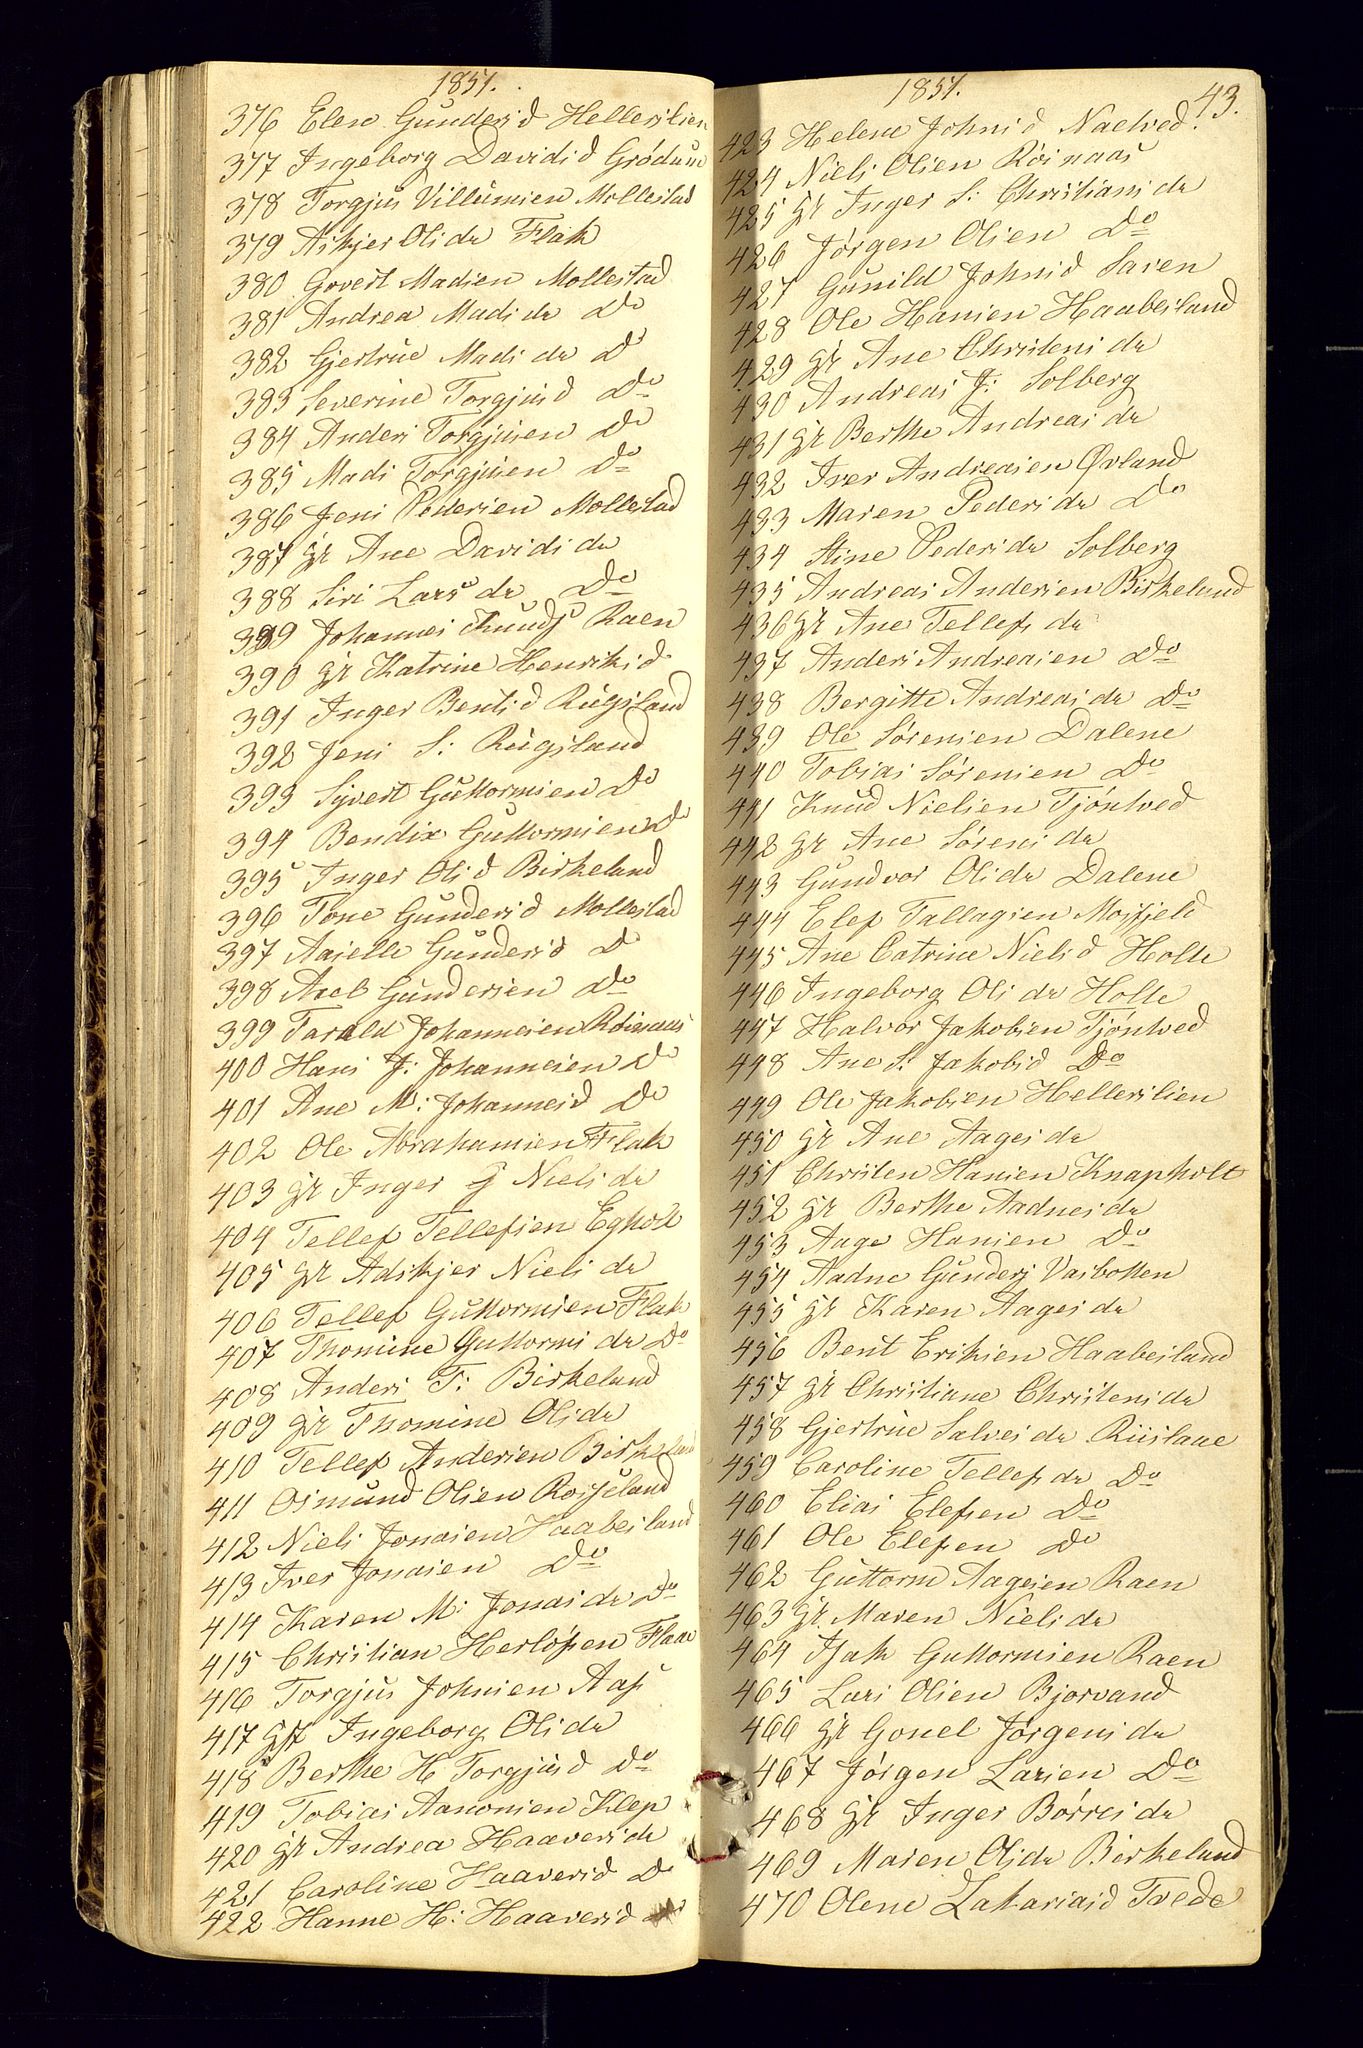 1851.
376 Elen Gundersd Hellerslien
377 Ingeborg Davidsd Grødum
378 Torgjus Villumsen Mollestad
379 Askjer Olsdr Flak
380 Govert Madsen Mollestad
381 Andrea Madsdr Do
382 Gjertrue Madsdr Do
383 Severine Torgjusd Do
384 Anders Torgjusen Do
385 Mads Torgjusen Do
386 Jens Pedersen Mollestad
387 gr Ane Davidsdr
388 Siri Larsdr Do
389 Johannes Knuds Raen
390 gr Katrine Henriksd
391 Inger Bentsd Rugsland
392 Jens S: Rugsland
393 Syvert Guttormsen Do
394 Bendix Guttormsen Do
395 Inger Olsd Birkeland
396 Tone Gundersd Mollestad
397 Aaselle Gundersd Do
398 Axel Gundersen Do
399 Tarald Johannesen Røinaas
400 Hans J: Johannesen Do
401 Ane M: Johannesd Do
402 Ole Abrahamsen Flak
403 gr Inger G Nielsdr
404 Tellef Tellefsen Egholt
405 gr Adskjer Nielsdr
406 Tellef Guttormsen Flak
407 Thomine Guttormsdr Do
408 Anders T: Birkeland
409 gr Thomine Olsdr
410 Tellef Andersen Birkeland
411 Osmund Olsen Rosseland
412 Niels Jonasen Haabesland
413 Iver Jonasen Do
414 Karen M: Jonasdr Do
415 Christian Herlofsen Flaa
416 Torgjus Johnsen Aas
417 gft Ingeborg Olsdr
418 Berthe H Torgjusd Do
419 Tobias Aanonsen Klep
420 gr Andrea Haaversdr
421 Caroline Haaversd Do
422 Hanne H: Haaversd Do
1851.
43.
423 Helene Johnsd Naelved.
424 Niels Olsen Røinaas
425 gr Inger S: Christiansdr
426 Jørgen Olsen Do
427 Gunild Johnsd Saren
428 Ole Hansen Haabesland
429 gr Ane Christensdr
430 Andreas J: Solberg
431 gr Berthe Andreasdr
432 Iver Andreasen Øvland
433 Maren Pedersdr Do
434 Stine Pedersdr Solberg
435 Andreas Andersen Birkeland
436 gr Ane Tellefsdr
437 Anders Andreasen Do
438 Bergitte Andreasdr Do
439 Ole Sørensen Dalene
440 Tobias Sørensen Do
441 Knud Nielsen Tjøntved
442 gr Ane Sørensdr
443 Gundvor Olsdr Dalene
444 Elef Tallagsen Mosfjeld
445 Ane Catrine Nielsd Holte
446 Ingeborg Olsdr Holte
447 Halvor Jakobsen Tjøntved
448 Ane S: Jakobsd Do
449 Ole Jakobsen Hellerslien
450 gr Ane Aagesdr
451 Christen Hansen Knapholt
452 gr Berthe Aadnesdr
453 Aage Hansen Do
454 Aadne Gunders Vasbotten
455 gr Karen Aagesdr
456 Bent Eriksen Haabesland
457 gr Christiane Christensdr
458 Gjertrue Salvesdr Riislane
459 Caroline Tellefsdr Do
460 Elias Elefsen Do
461 Ole Elefsen Do
462 Guttorm Aagesen Raen
463 gr. Maren Nielsdr
464 Isak Guttormsen Raen
465 Lars Olsen Bjorvand
466 gr Gonel Jørgensdr
467 Jørgen Larsen Do
468 gr Inger Børresdr
469 Maren Olsdr Birkeland
470 Olene Zakariasd Tvede